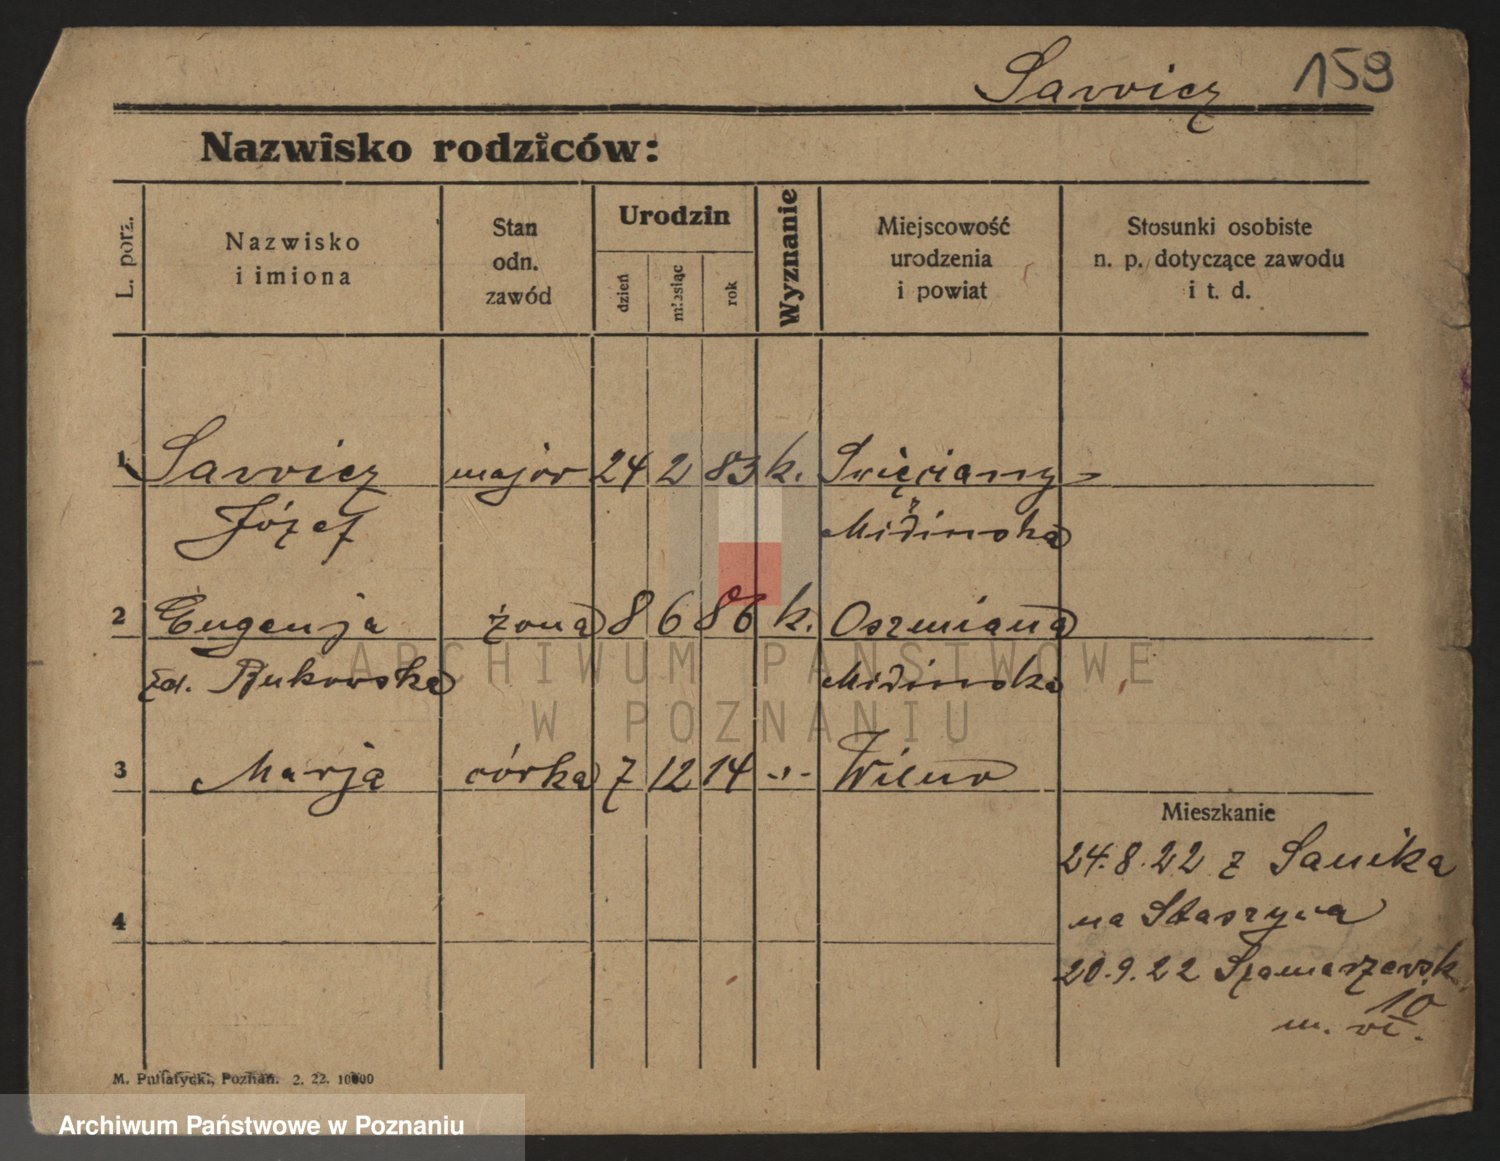 Sawicz 159
Nazwisko rodziców:
L. porz.
Nazwisko
i imiona
Stan
odn.
zawód
Urodzin
dzień
miesiąc
rok
Wyznanie
Miejscowość
urodzenia
i powiat
Stosunki osobiste
n. p. dotyczące zawodu
i t. d.
1 Sawicz major 24 2 83 k. Święciany
Józef
2 Eugenja żona 8 6 86 k. Oszmiana
zd. Bukowska
3 Marja córka 7 12 14 -„- Wilno
Mieszkanie
24.8.22 z Sanoka
na Staszyca
4
20.9.22 Szamarzewsk
10
m. VI.
M. Putiatycki, Poznań. 2. 22. 10000
ARCHIWUM PAŃSTWOWE
W POZNANIU
Archiwum Państwowe w Poznaniu